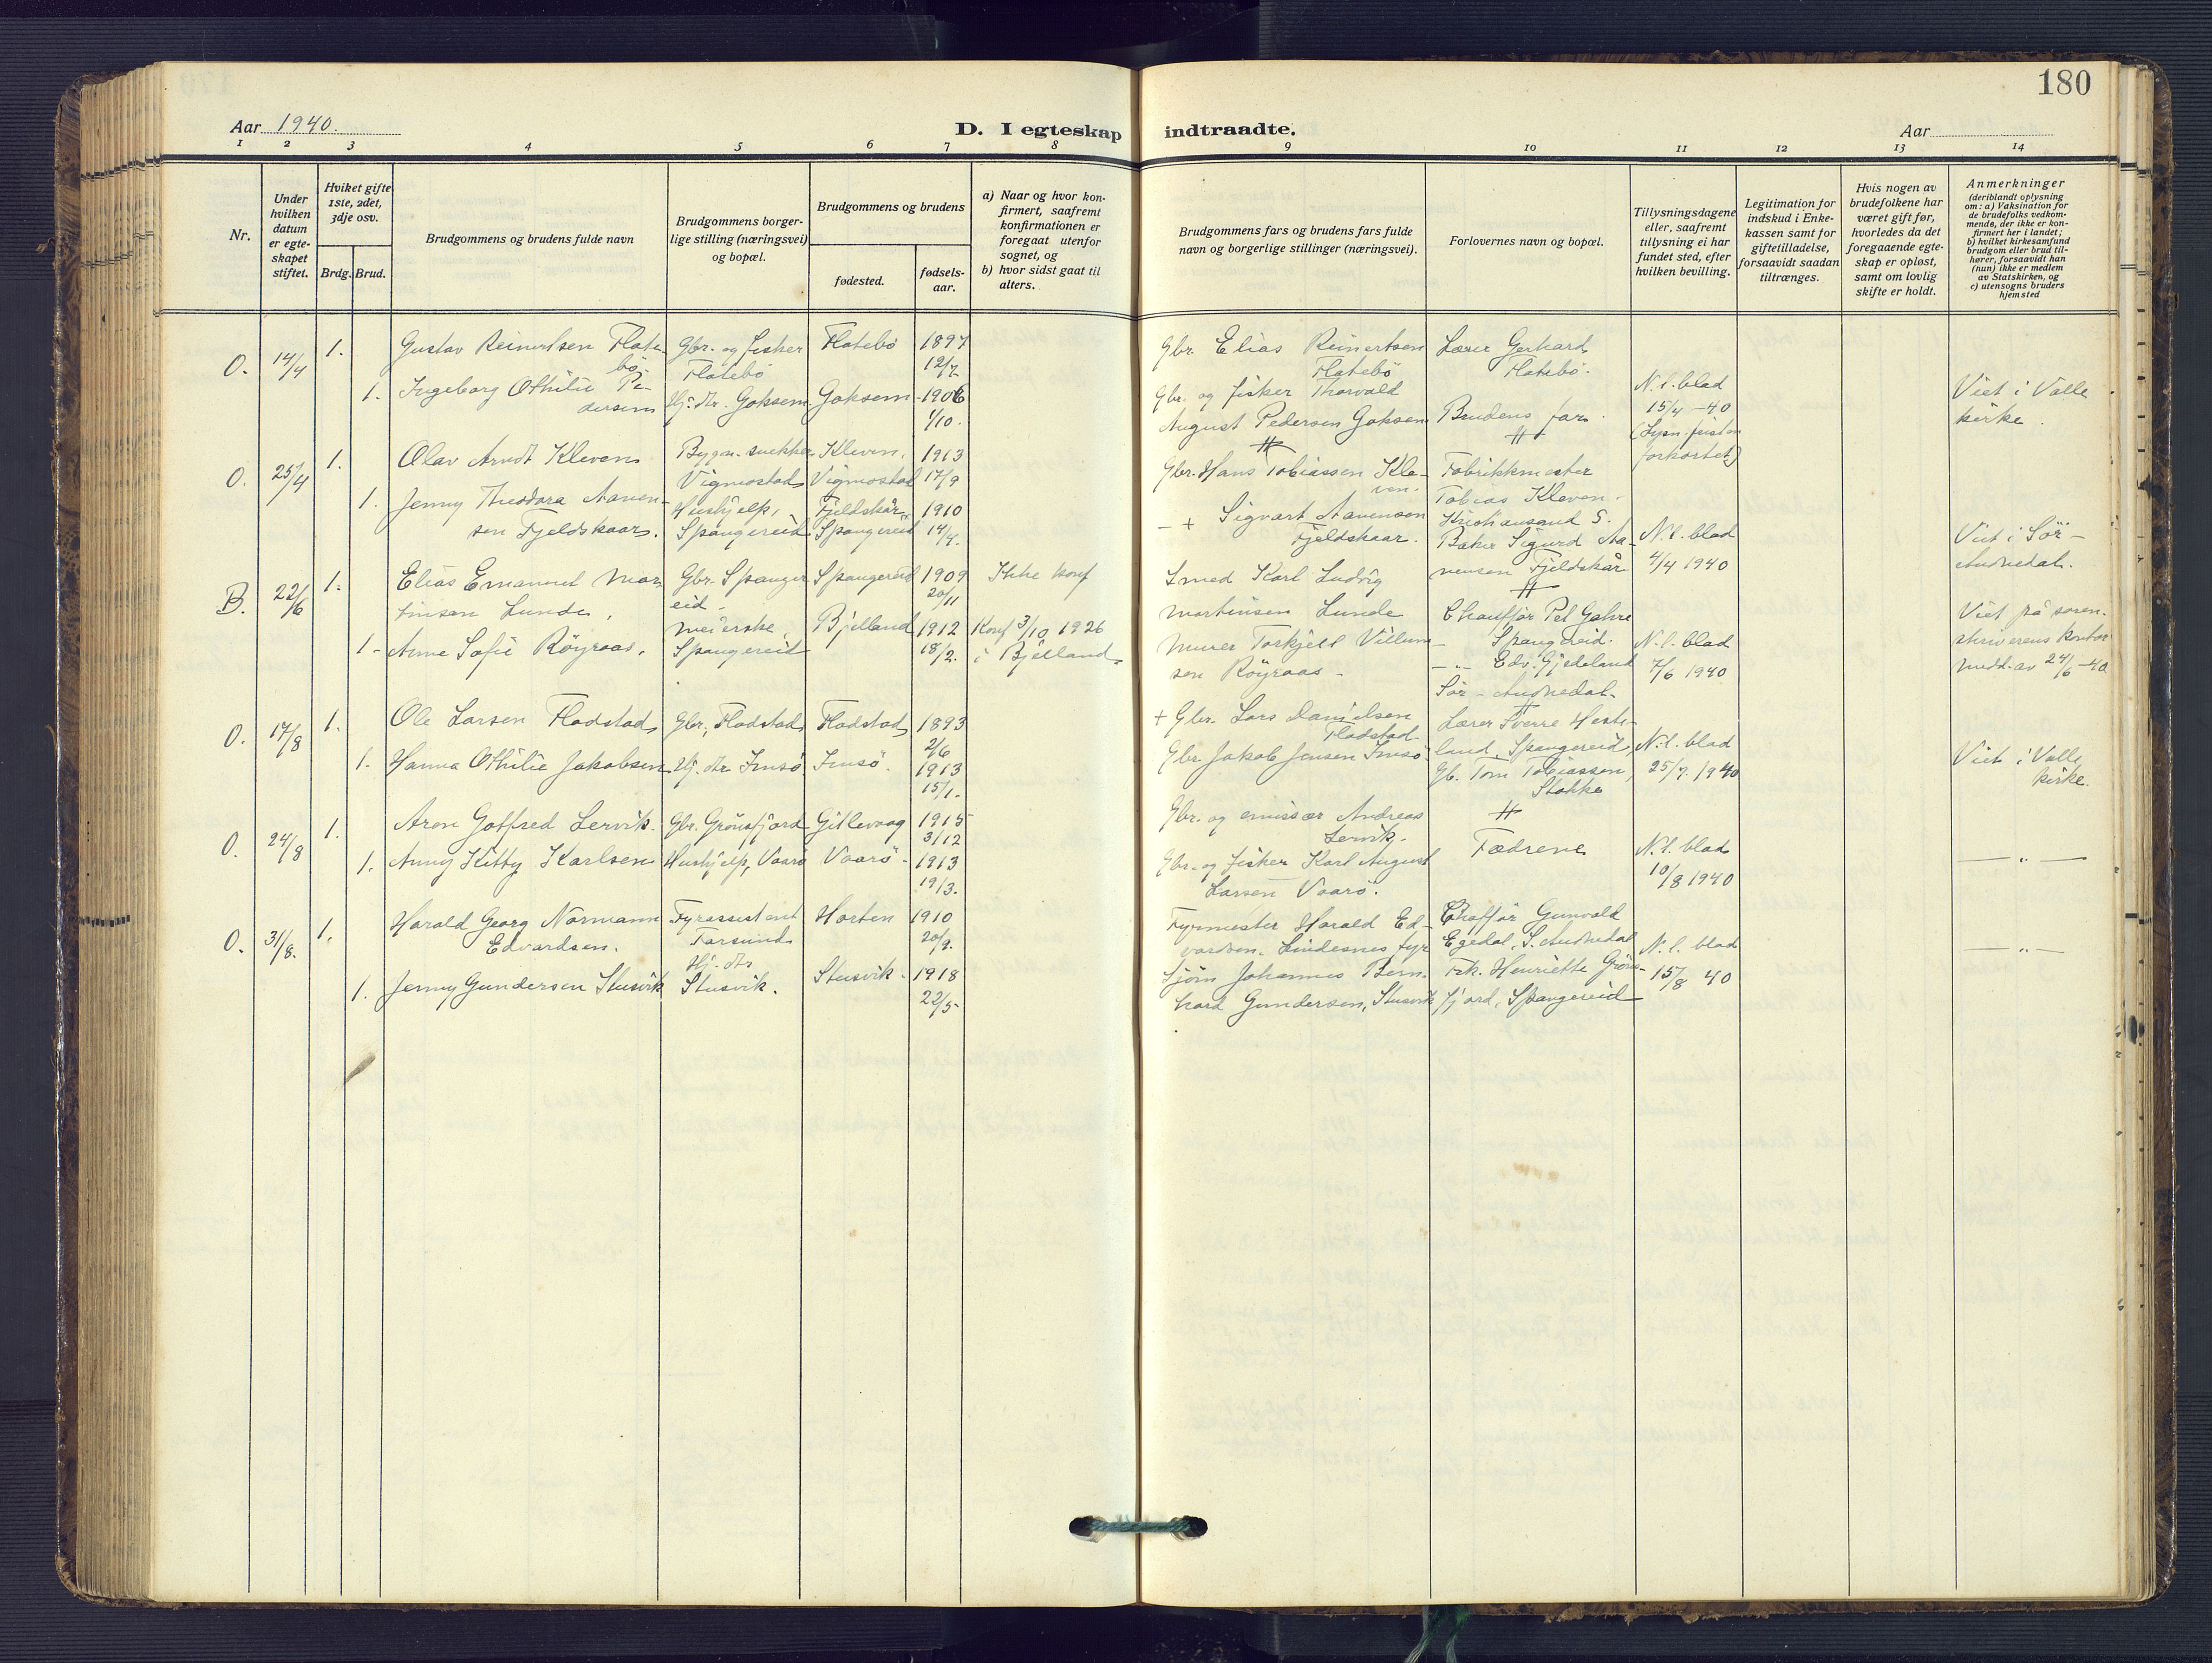 180
Aar 1940.
D. I egteskap indtraadte.
Aar
1 2 3 4 5 6 7 8 9 10 11 12 13 14
Nr.
Under
hvilken
datum
er egte-
skapet
stiftet.
Hviket gifte
1ste, 2det,
3dje osv.
Brdg. Brud.
Brudgommens og brudens fulde navn
Brudgommens borger-
lige stilling (næringsvei)
og bopæl.
Brudgommens og brudens
fødested.
fødsels-
aar.
a) Naar og hvor kon-
firmert, saafremt
konfirmationen er
foregaat utenfor
sognet, og
b) hvor sidst gaat til
alters.
Brudgommens fars og brudens fars fulde
navn og borgerlige stillinger (næringsvei).
Forlovernes navn og bopæl.
Tillysningsdagene
eller, saafremt
tillysning ei har
fundet sted, efter
hvilken bevilling.
Legitimation for
indskud i Enke-
kassen samt for
giftetilladelse,
forsaavidt saadan
tiltrænges.
Hvis nogen av
brudefolkene har
været gift før,
hvorledes da det
foregaaende egte-
skap er opløst,
samt om lovlig
skifte er holdt.
Anmerkninger
(deriblandt oplysning
om: a) Vaksination for
de brudefolks vedkom-
mende, der ikke er kon-
firmert her i landet;
b) hvilket kirkesamfund
brudgom eller brud til-
hører, forsaavidt han
(hun) ikke er medlem
av Statskirken, og
c) utensogns bruders
hjemsted
O. 14/4 1. Gustav Reinertsen Flate-
bø
Gbr. og fisker
Flatebø
Flatebø
1897
12/7
1. Ingeborg Othilie Pe-
dersen
Hj. dtr. Goksem
Goksem
1906
1/10.
Gbr. Elias Reinertsen
Flatebø
Gbr. og fisker Thorvald
August Pedersen Goksem
Lærer Gerhard
Flatebø.
Brudens far.
N. l. blad
15/4 -40
(Lysn.fristen
forkortet)
Viet i Valle
kirke.
O. 25/4 1. Olav Arndt Kleven
Bygn. snekker
Vigmostad
Kleven,
Vigmostad
1913
17/9
1. Jenny Theodora Aanen-
sen Fjeldskaar.
Hushjelp,
Spangereid
Fjeldskår
Spangereid
1910
14/4.
Gbr. Hans Tobiassen Kle-
ven.
- + Sigvart Aanensen
Fjeldskaar.
Fabrikkmester
Tobias Kleven.
Kristiansand S.
Baker Sigurd Aa-
nensen Fjeldskår
N. l. blad
4/4 1940
Viet i Sör-
Audnedal.
B. 22/6 1. Elias Emanuel Mar-
tinsen Lunde,
Gbr. Spanger
eid.
Spangereid
1909
20/11
Ikke konf
1- Anne Sofie Röyraas.
Meierske,
Spangereid
Bjelland
1912
18/2.
Konf 3/10 1926
i Bjelland
Smed Karl Ludvig
Martinsen Lunde
Murer Torkjell Villum-
sen Röyraas -
Chauffør Pet Gahre
- Spangereid.
-"- Edv. Gjedeland
Sör-Audnedal.
N. l. blad
7/6 1940
Viet på soren-
skriverens kontor
Medd. av 24/6 -40
O. 17/8 1. Ole Larsen Fladstad
Gbr., Fladstad
Fladstad
1893
2/6
1. Hanna Othilie Jakobsen
Hj. dtr Imsö
Imsö.
1913
15/1.
+ Gbr. Lars Danielsen
Fladstad.
Gbr. Jakob Jensen Imsö
Lærer Sverre Heste-
land, Spangereid
Gb. Tom Tobiassen,
Stokke
N. l. blad
25/7. 1940
Viet i Valle
kirke.
O. 24/8 1. Aron Gotfred Lervik.
Gbr. Grönsfjord
Gitlevaag
1915
3/12
1. Anny Kitty Karlsen
Hushjelp, Vaarö
Vaarö-
1913
19/3.
Gbr. og emissær Andreas
Lervik.
Gbr. og fisker Karl August
Larsen Vaarö.
Fædrene
N. l. blad
10/8 1940
- " -
O. 31/8. 1. Harald Georg Normann
Edvardsen.
Fyrassistent
Farsund
Horten
1910
20/9.
1. Jenny Gundersen Stusvik
Hj. dtr
Stusvik.
Stusvik.
1918
22/5-
Fyrmester Harald Ed-
vardsen. Lindesnes fyr
Sjöm Johannes Bern-
hard Gundersen, Stusvik
Chaffør Gunvald
Egedal, S. Audnedal
Frk. Henriette Gröns-
fjord, Spangereid
N. l. blad
15/8 40
- " -